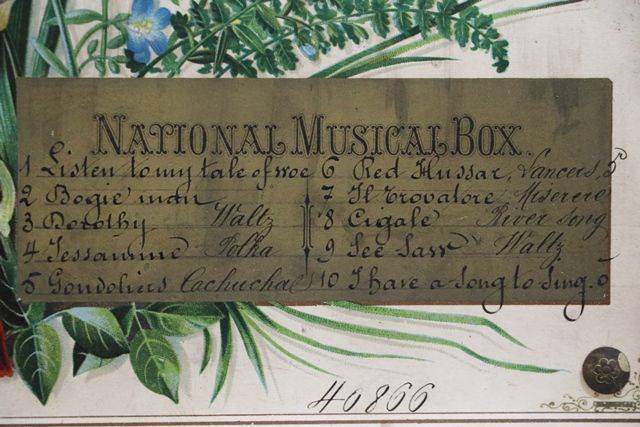 NATIONAL MUSICAL BOX.
1 Listen to my tale of woe
2 Bogie man
3 Dorothy Waltz
4 Jessamine Polka
5 Gondoliers Cachucha
6 Red Hussar, Lancers, 5
7 Il Trovatore Miserere
8 Cigale River Song
9 See Saw Waltz
10 I have a Song to Sing. O
40866